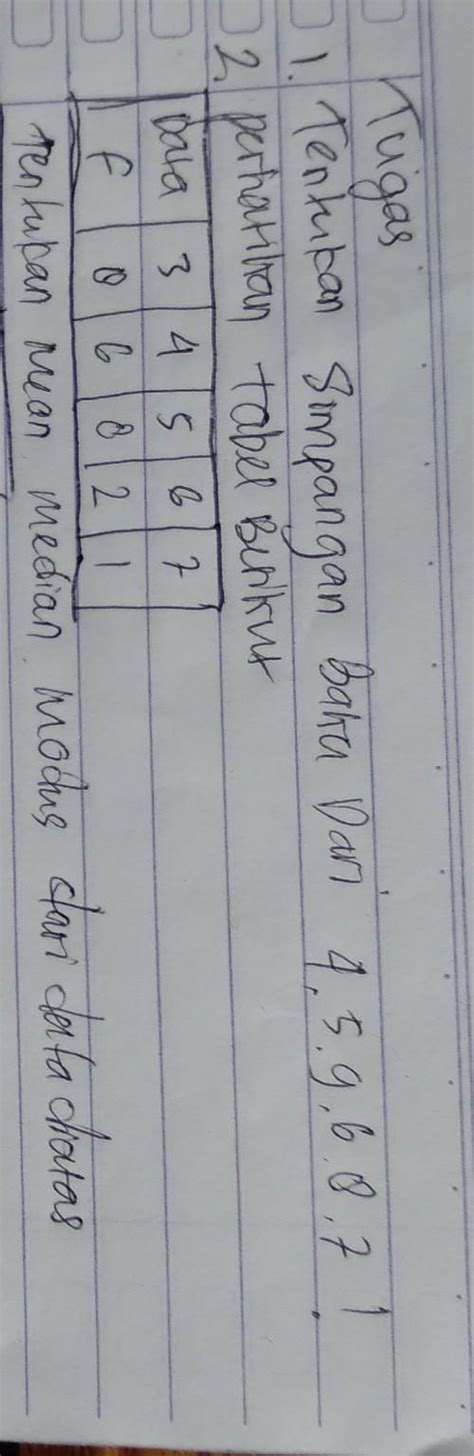 Tugas
1. Tentukan Simpangan Baku Dari 4, 5, 9, 6, 8, 7 !
2. perhatikan tabel Berikut
Data 3 4 5 6 7
F 8 6 8 2 1
tentukan mean median modus dari data diatas